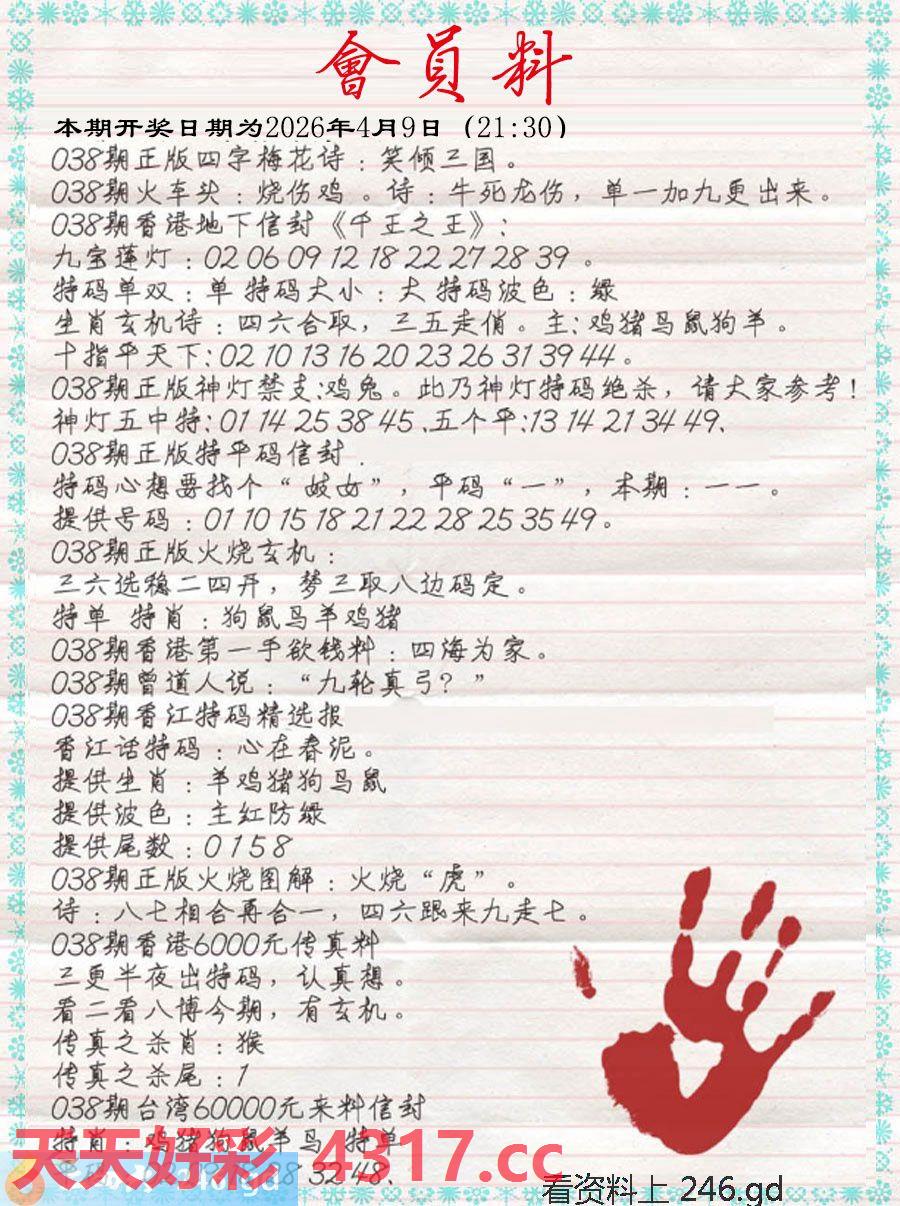 會員料
本期开奖日期为2026年4月9日（21:30）
038期正版四字梅花诗：笑倾三国。
038期火车头：烧伤鸡 。诗：牛死龙伤，单一加九更出来。
038期香港地下信封《千王之王》:
九宝莲灯：02 06 09 12 18 22 27 28 39 。
特码单双：单 特码大小：大 特码波色：绿
生肖玄机诗：四六合取，三五走俏。主: 鸡猪马鼠狗羊。
十指平天下: 02 10 13 16 20 23 26 31 39 44 。
038期正版神灯禁支:鸡兔。此乃神灯特码绝杀，请大家参考！
神灯五中特: 01 14 25 38 45 .五个平:13 14 21 34 49.
038期正版特平码信封 .
特码心想要找个“ 妓女”，平码“一”，本期：一一。
提供号码：01 10 15 18 21 22 28 25 35 49 。
038期正版火烧玄机：
三六选稳二四开，梦三取八边码定。
特单 特肖：狗鼠马羊鸡猪
038期香港第一手欲钱料：四海为家。
038期曾道人说：“九轮真弓？”
038期香江特码精选报
香江话特码：心在春泥。
提供生肖：羊鸡猪狗马鼠
提供波色：主红防绿
提供尾数：0 1 5 8
038期正版火烧图解：火烧“虎”。
诗：八七相合再合一，四六跟来九走七。
038期香港6000元传真料
三更半夜出特码，认真想。
看二看八博今期，有玄机。
传真之杀肖：猴
传真之杀尾：1
038期台湾60000元来料信封
特肖：鸡猪狗鼠羊马 特单
天天好彩 4317.cc
32 48.
看资料上 246.gd